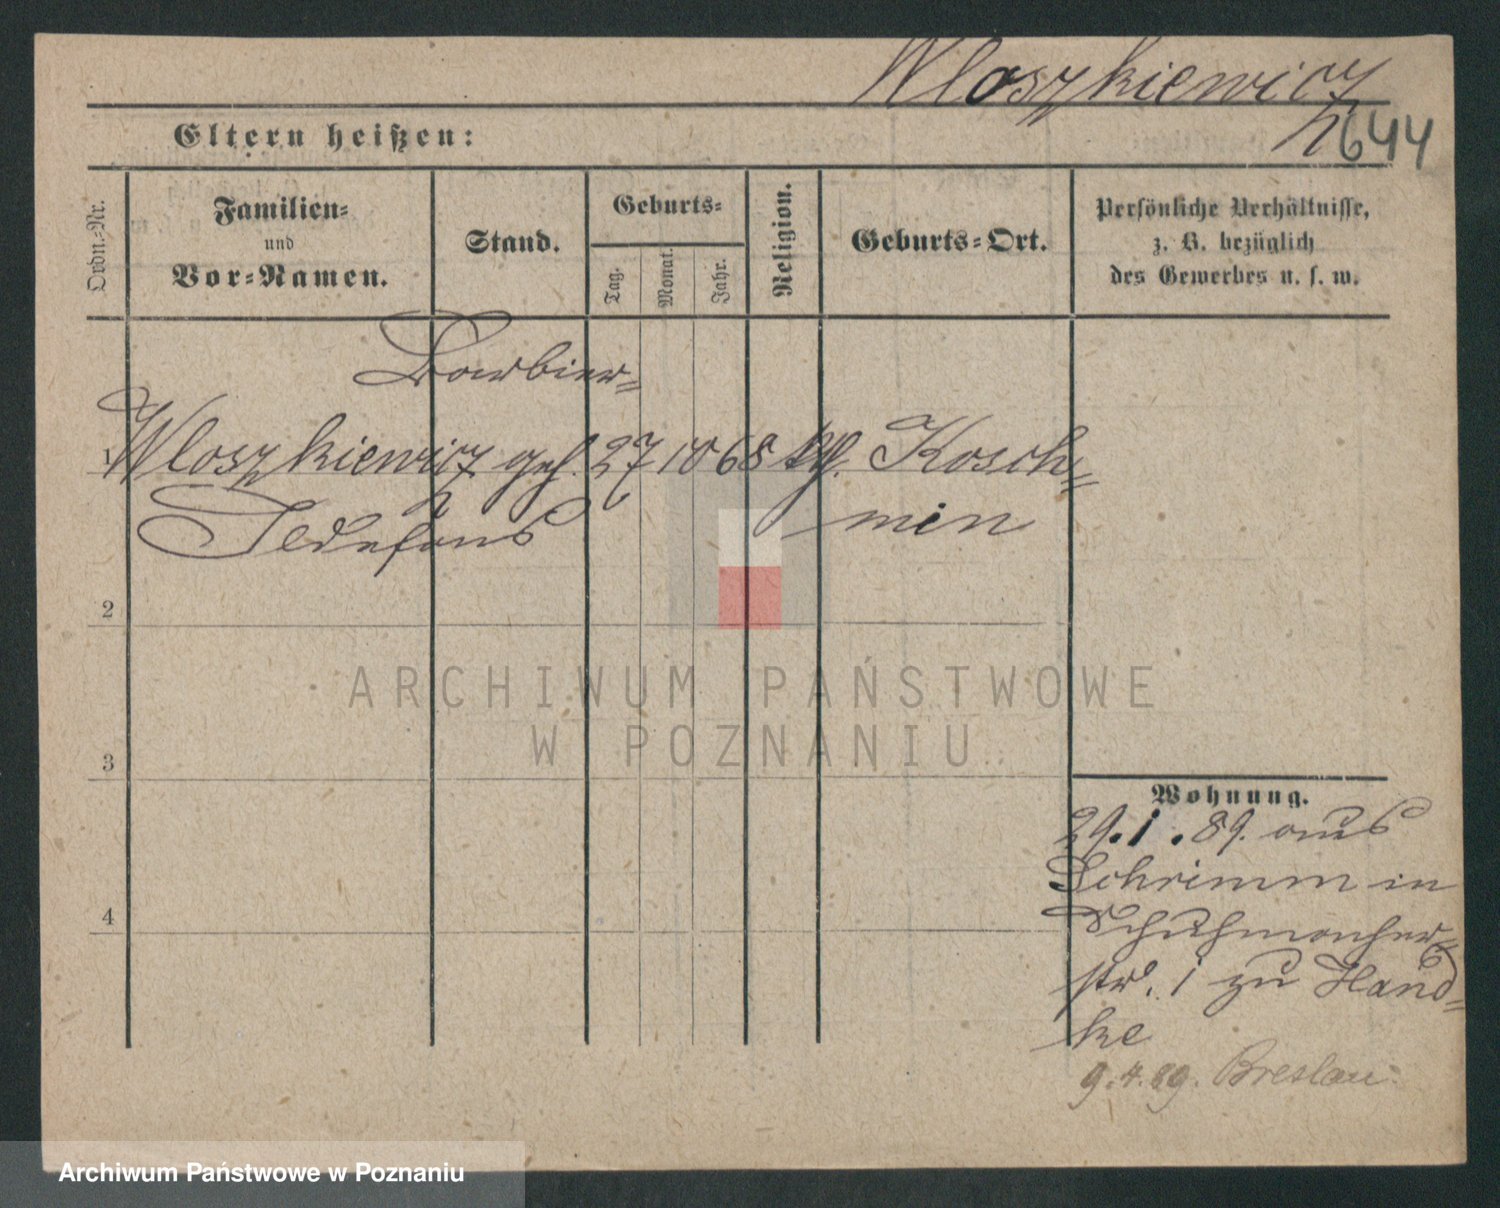 Wloszkiewicz
2644
Eltern heißen:
Ordn.-Nr.
Familien-
und
Vor-Namen.
Stand.
Geburts-
Tag.
Monat.
Jahr.
Religion.
Geburts-Ort.
Persönliche Verhältnisse,
z. B. bezüglich
des Gewerbes u. s. w.
Barbier-
1 Wloszkiewicz geh. 27 10 68 kth. Kosch-
Ildefons min
2
3
4
Wohnung.
29.1.89. aus
Schrimm in
Schuhmacher-
str. 1 zu Hand-
ke
9.4.89. Breslau.
ARCHIWUM PAŃSTWOWE
W POZNANIU
Archiwum Państwowe w Poznaniu